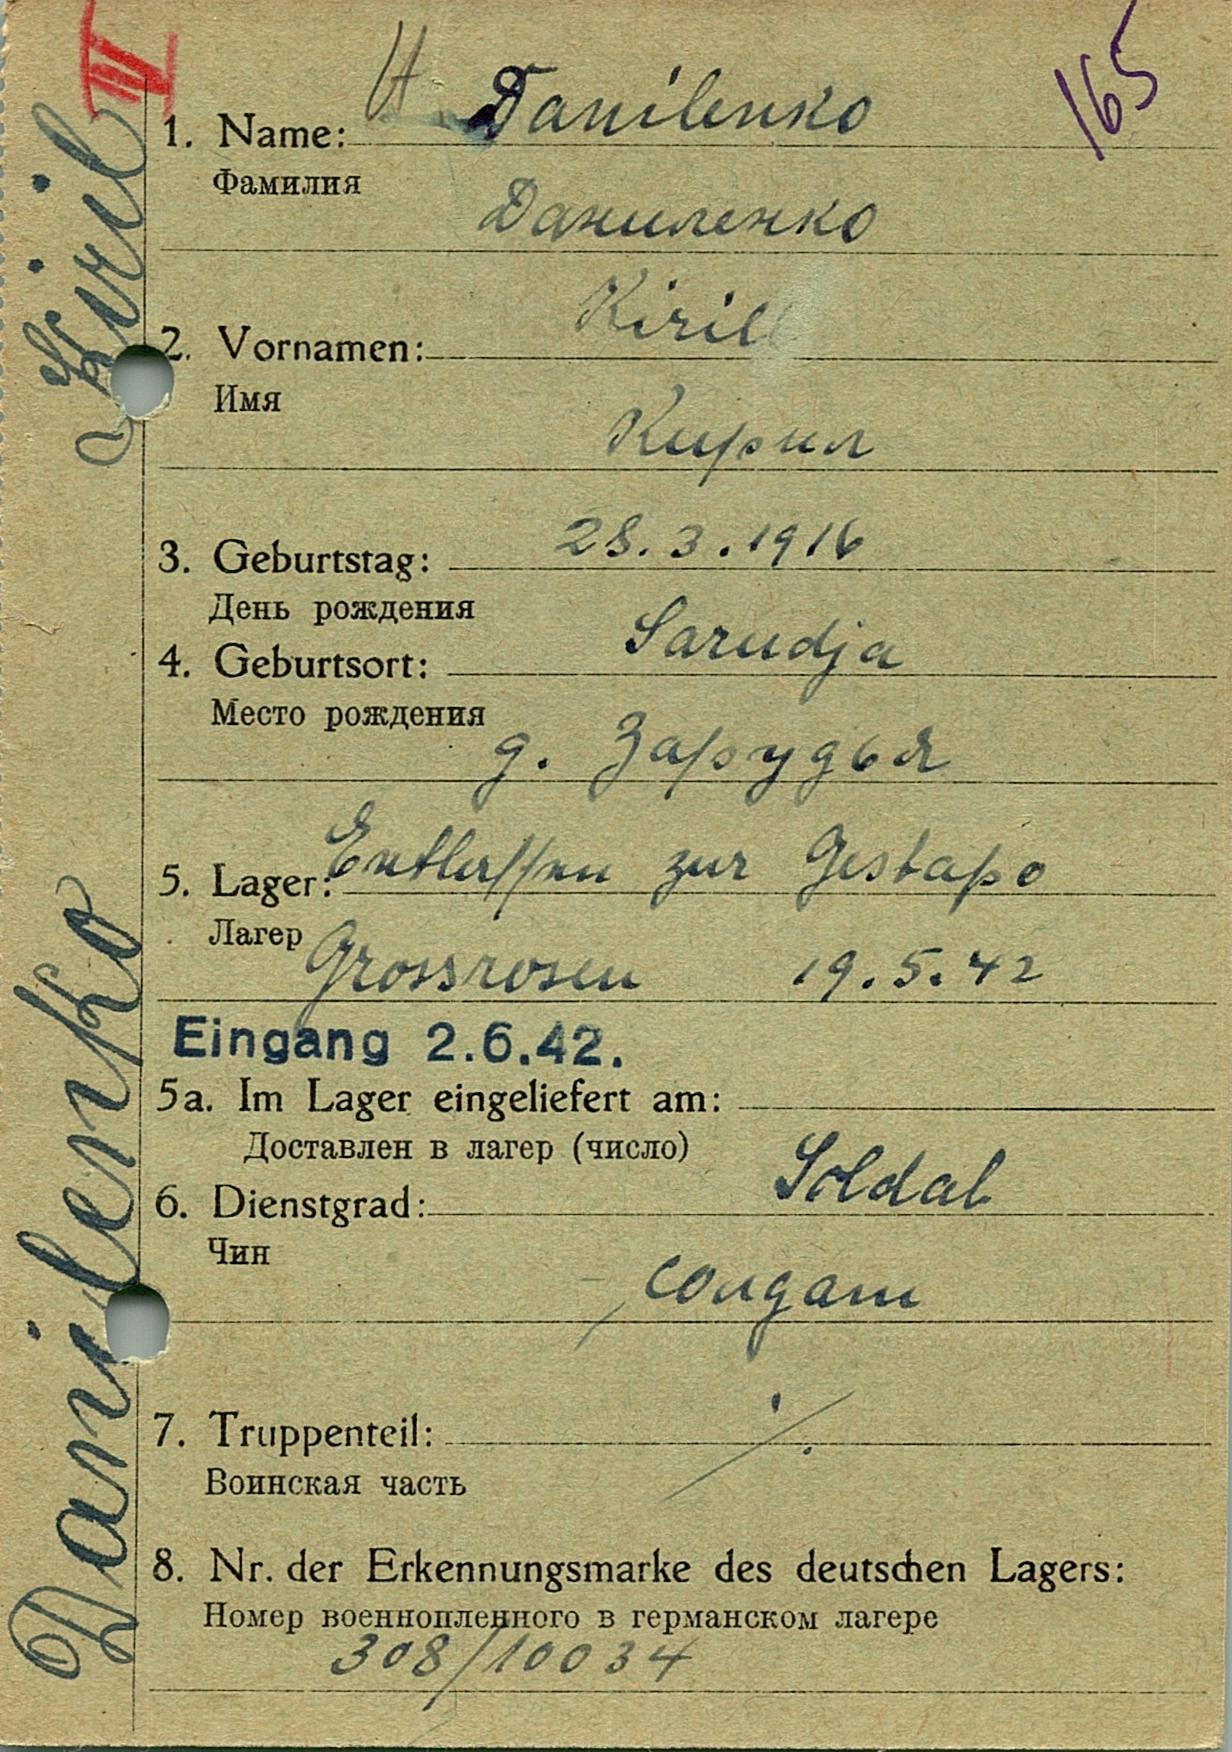 IV
165
1. Name: Danilenko
Фамилия
Даниленко
2. Vornamen: Kirill
Имя
Кирил
3. Geburtstag: 28.3.1916
День рождения
4. Geburtsort: Sarudja
Место рождения
д. Зарудья
5. Lager: Entlassen zur Gestapo
Лагер
Grossrosen 19.5.42
Eingang 2.6.42.
5a. Im Lager eingeliefert am:
Доставлен в лагер (число)
6. Dienstgrad: Soldat
Чин
солдат
7. Truppenteil: ./.
Воинская часть
8. Nr. der Erkennungsmarke des deutschen Lagers:
Номер военнопленного в германском лагере
308/10034
Danilenko Kiril